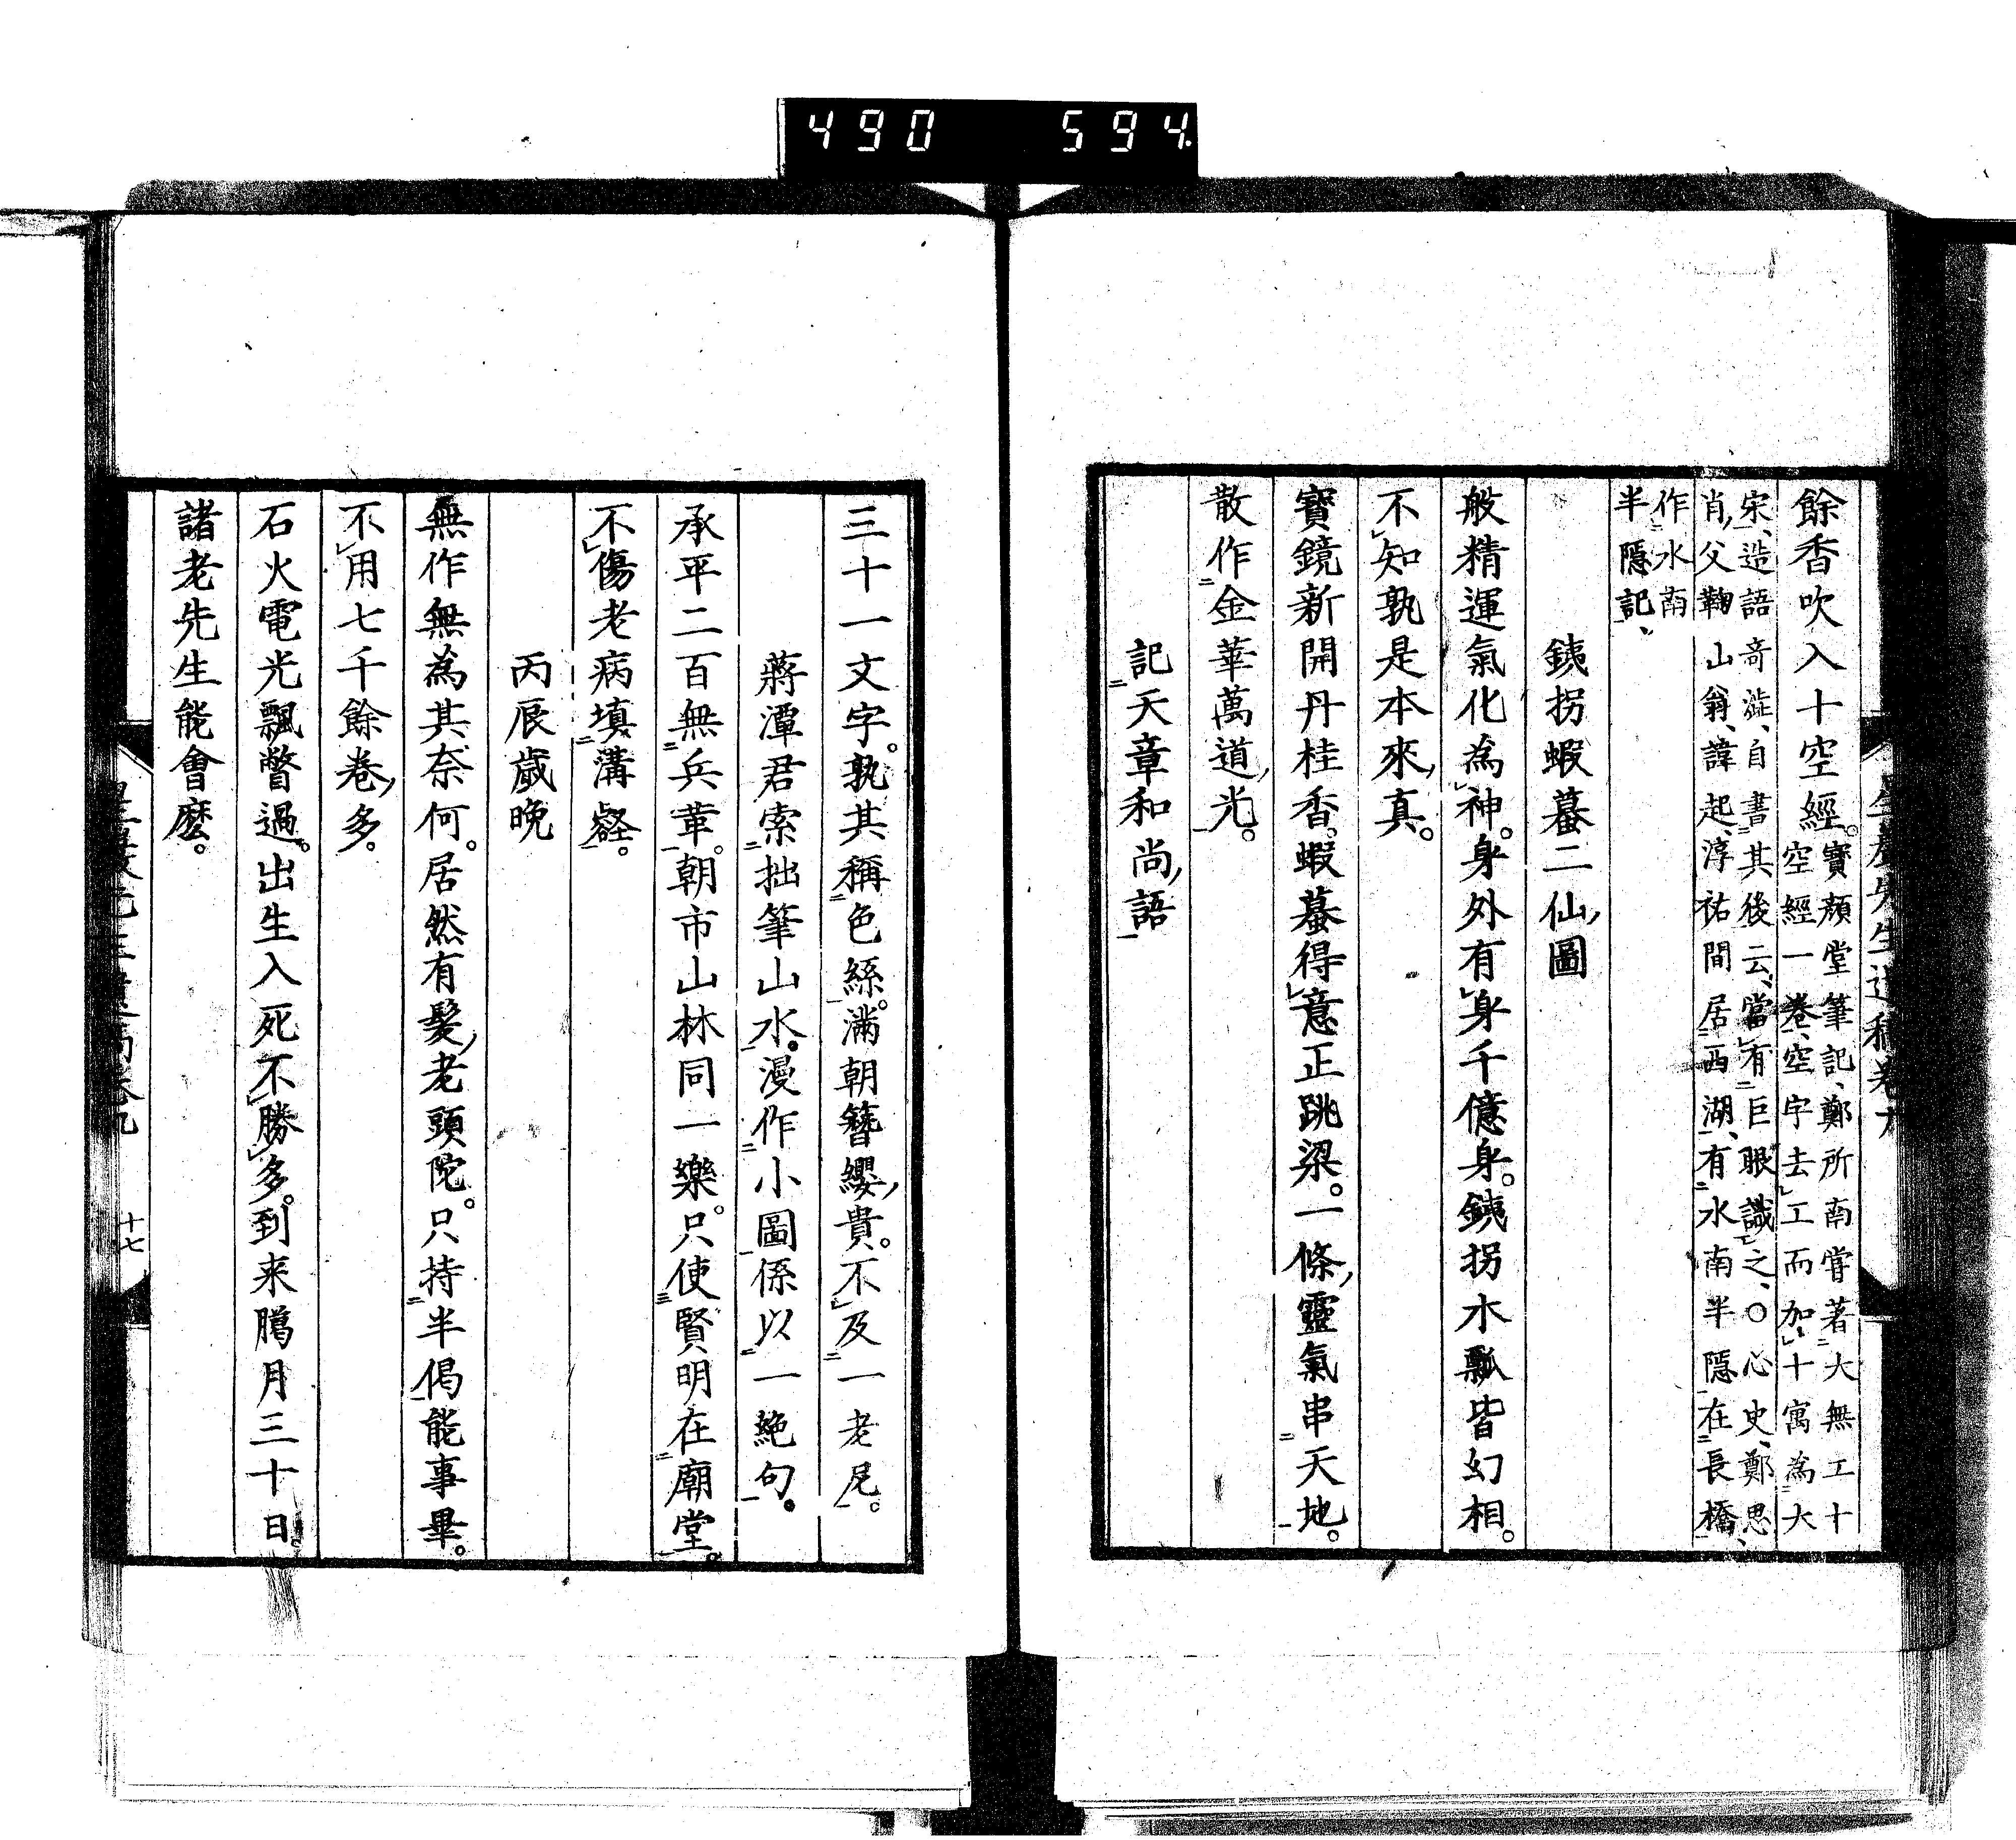 490 594
餘香吹入十空經。寶顏堂筆記、鄭所南嘗著大無工十
空經一卷、空字去工而加十寓為大
宋、造語奇澁、自書其後云、當有巨眼識之、○心史、鄭思
肖、父鞠山翁、諱起、淳祐間居西湖、有水南半隱在長橋
作水南
半隱記、
銕拐蝦蟇二仙圖
般精運氣化為神。身外有身千億身。銕拐水瓢皆幻相。
不知孰是本來真。
寶鏡新開丹桂香。蝦蟇得意正跳梁。一條靈氣串天地。
散作金華萬道光。
記天章和尚語
三十一文字。孰其稱色絲。滿朝簪纓貴。不及一老尼。
蔣潭君索拙筆山水。漫作小圖係以一絶句。
承平二百無兵革。朝市山林同一樂。只使賢明在廟堂。
不傷老病填溝壑。
丙辰歲晚
無作無為其奈何。居然有髮老頭陀。只持半偈能事畢。
不用七千餘卷多。
石火電光飄瞥過。出生入死不勝多。到来臈月三十日。
諸老先生能會麼。
十七